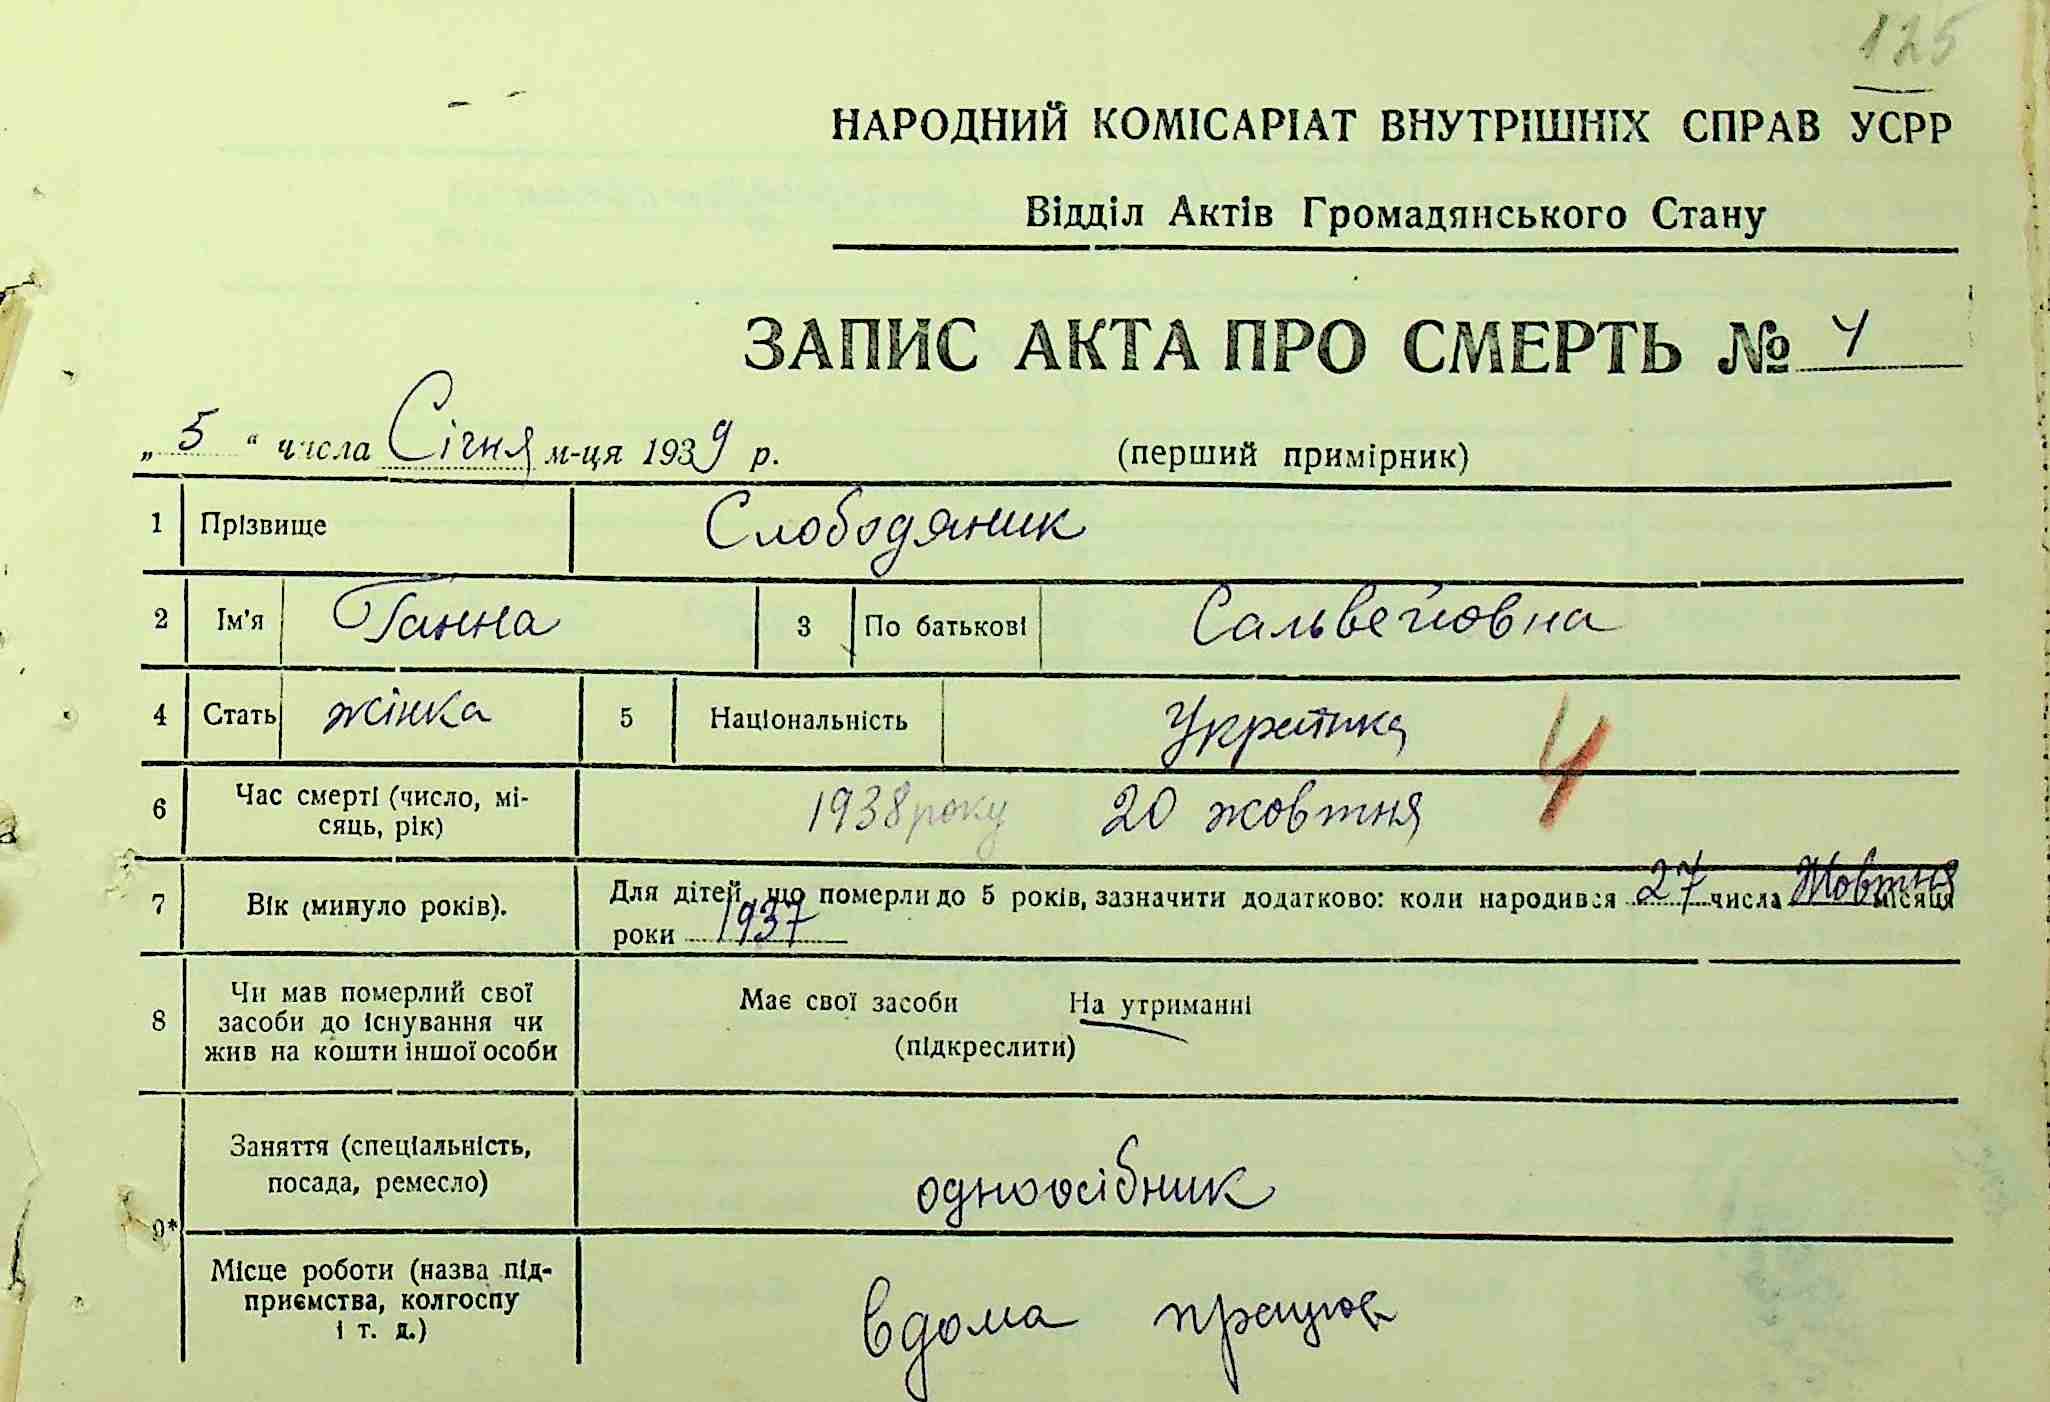 125
НАРОДНИЙ КОМІСАРІАТ ВНУТРІШНІХ СПРАВ УСРР
Відділ Актів Громадянського Стану
ЗАПИС АКТА ПРО СМЕРТЬ № 4
„ 5 “ числа Січня м-ця 1939 р. (перший примірник)
1 Прізвище Слободяник
2 Ім'я Ганна 3 По батькові
4 Стать жінка 5 Національність Україн­ка 4
6 Час смерті (число, мі-
сяць, рік) 1938 року 20 жовтня
7 Вік (минуло років). Для дітей, що померли до 5 років, зазначити додатково: коли народився 27 числа Жовтня місяця
роки 1937
8 Чи мав померлий свої
засоби до існування чи
жив на кошти іншої особи
Має свої засоби На утриманні
(підкреслити)
9*
Заняття (спеціальність,
посада, ремесло) одноосібник
Місце роботи (назва під-
приємства, колгоспу
і т. д.) вдома працює